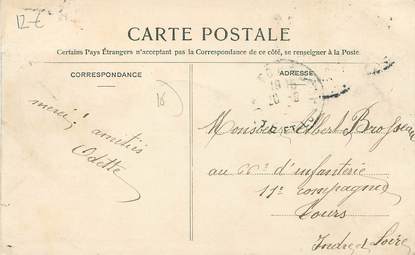 12 €
CARTE POSTALE
Certains Pays Étrangers n'acceptant pas la Correspondance de ce côté, se renseigner à la Poste.
CORRESPONDANCE
ADRESSE
16
merci!
amitiés
Odette
Monsieur Albert Brosseau
au 66e d'infanterie
11e compagnie
Tours
Indre et Loire